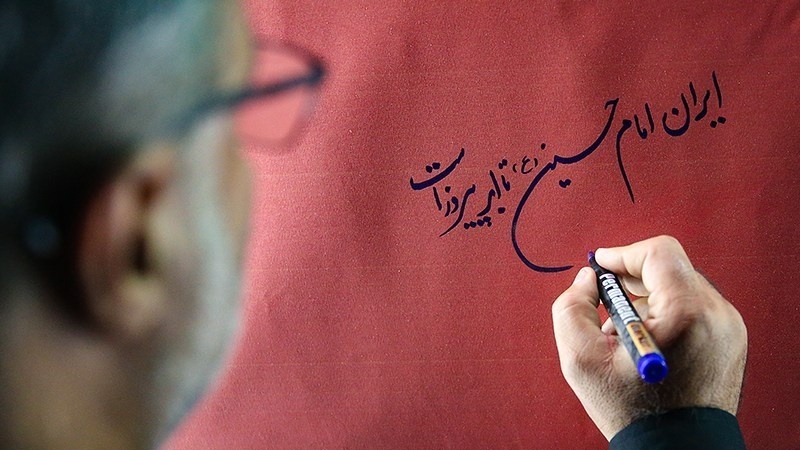 ایران امام حسین (ع) تا ابد پیروز است
Permanent